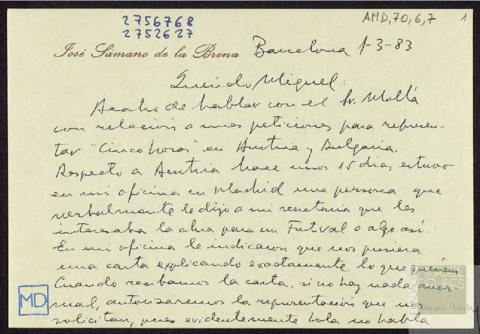 2756768
2752627
AMD,70,6,7
1
José Sámano de la Brena
Barcelona 1-3-83
Querido Miguel:
Acabo de hablar con el Sr. Mollá
con relación a unas peticiones para represen-
tar "Cinco horas" en Austria y Bulgaria.
Respecto a Austria hace unos 15 días estuvo
en mi oficina en Madrid una persona que
verbalmente le dijo a mi secretaria que les
interesaba la obra para un Festival o algo así.
En mi oficina le indicaron que nos pusiera
una carta explicando exactamente lo que querían
Cuando recibamos la carta, si no hay nada anor
mal, autorizaremos la representación que nos
solicitan, pues evidentemente Lola no habla
MD